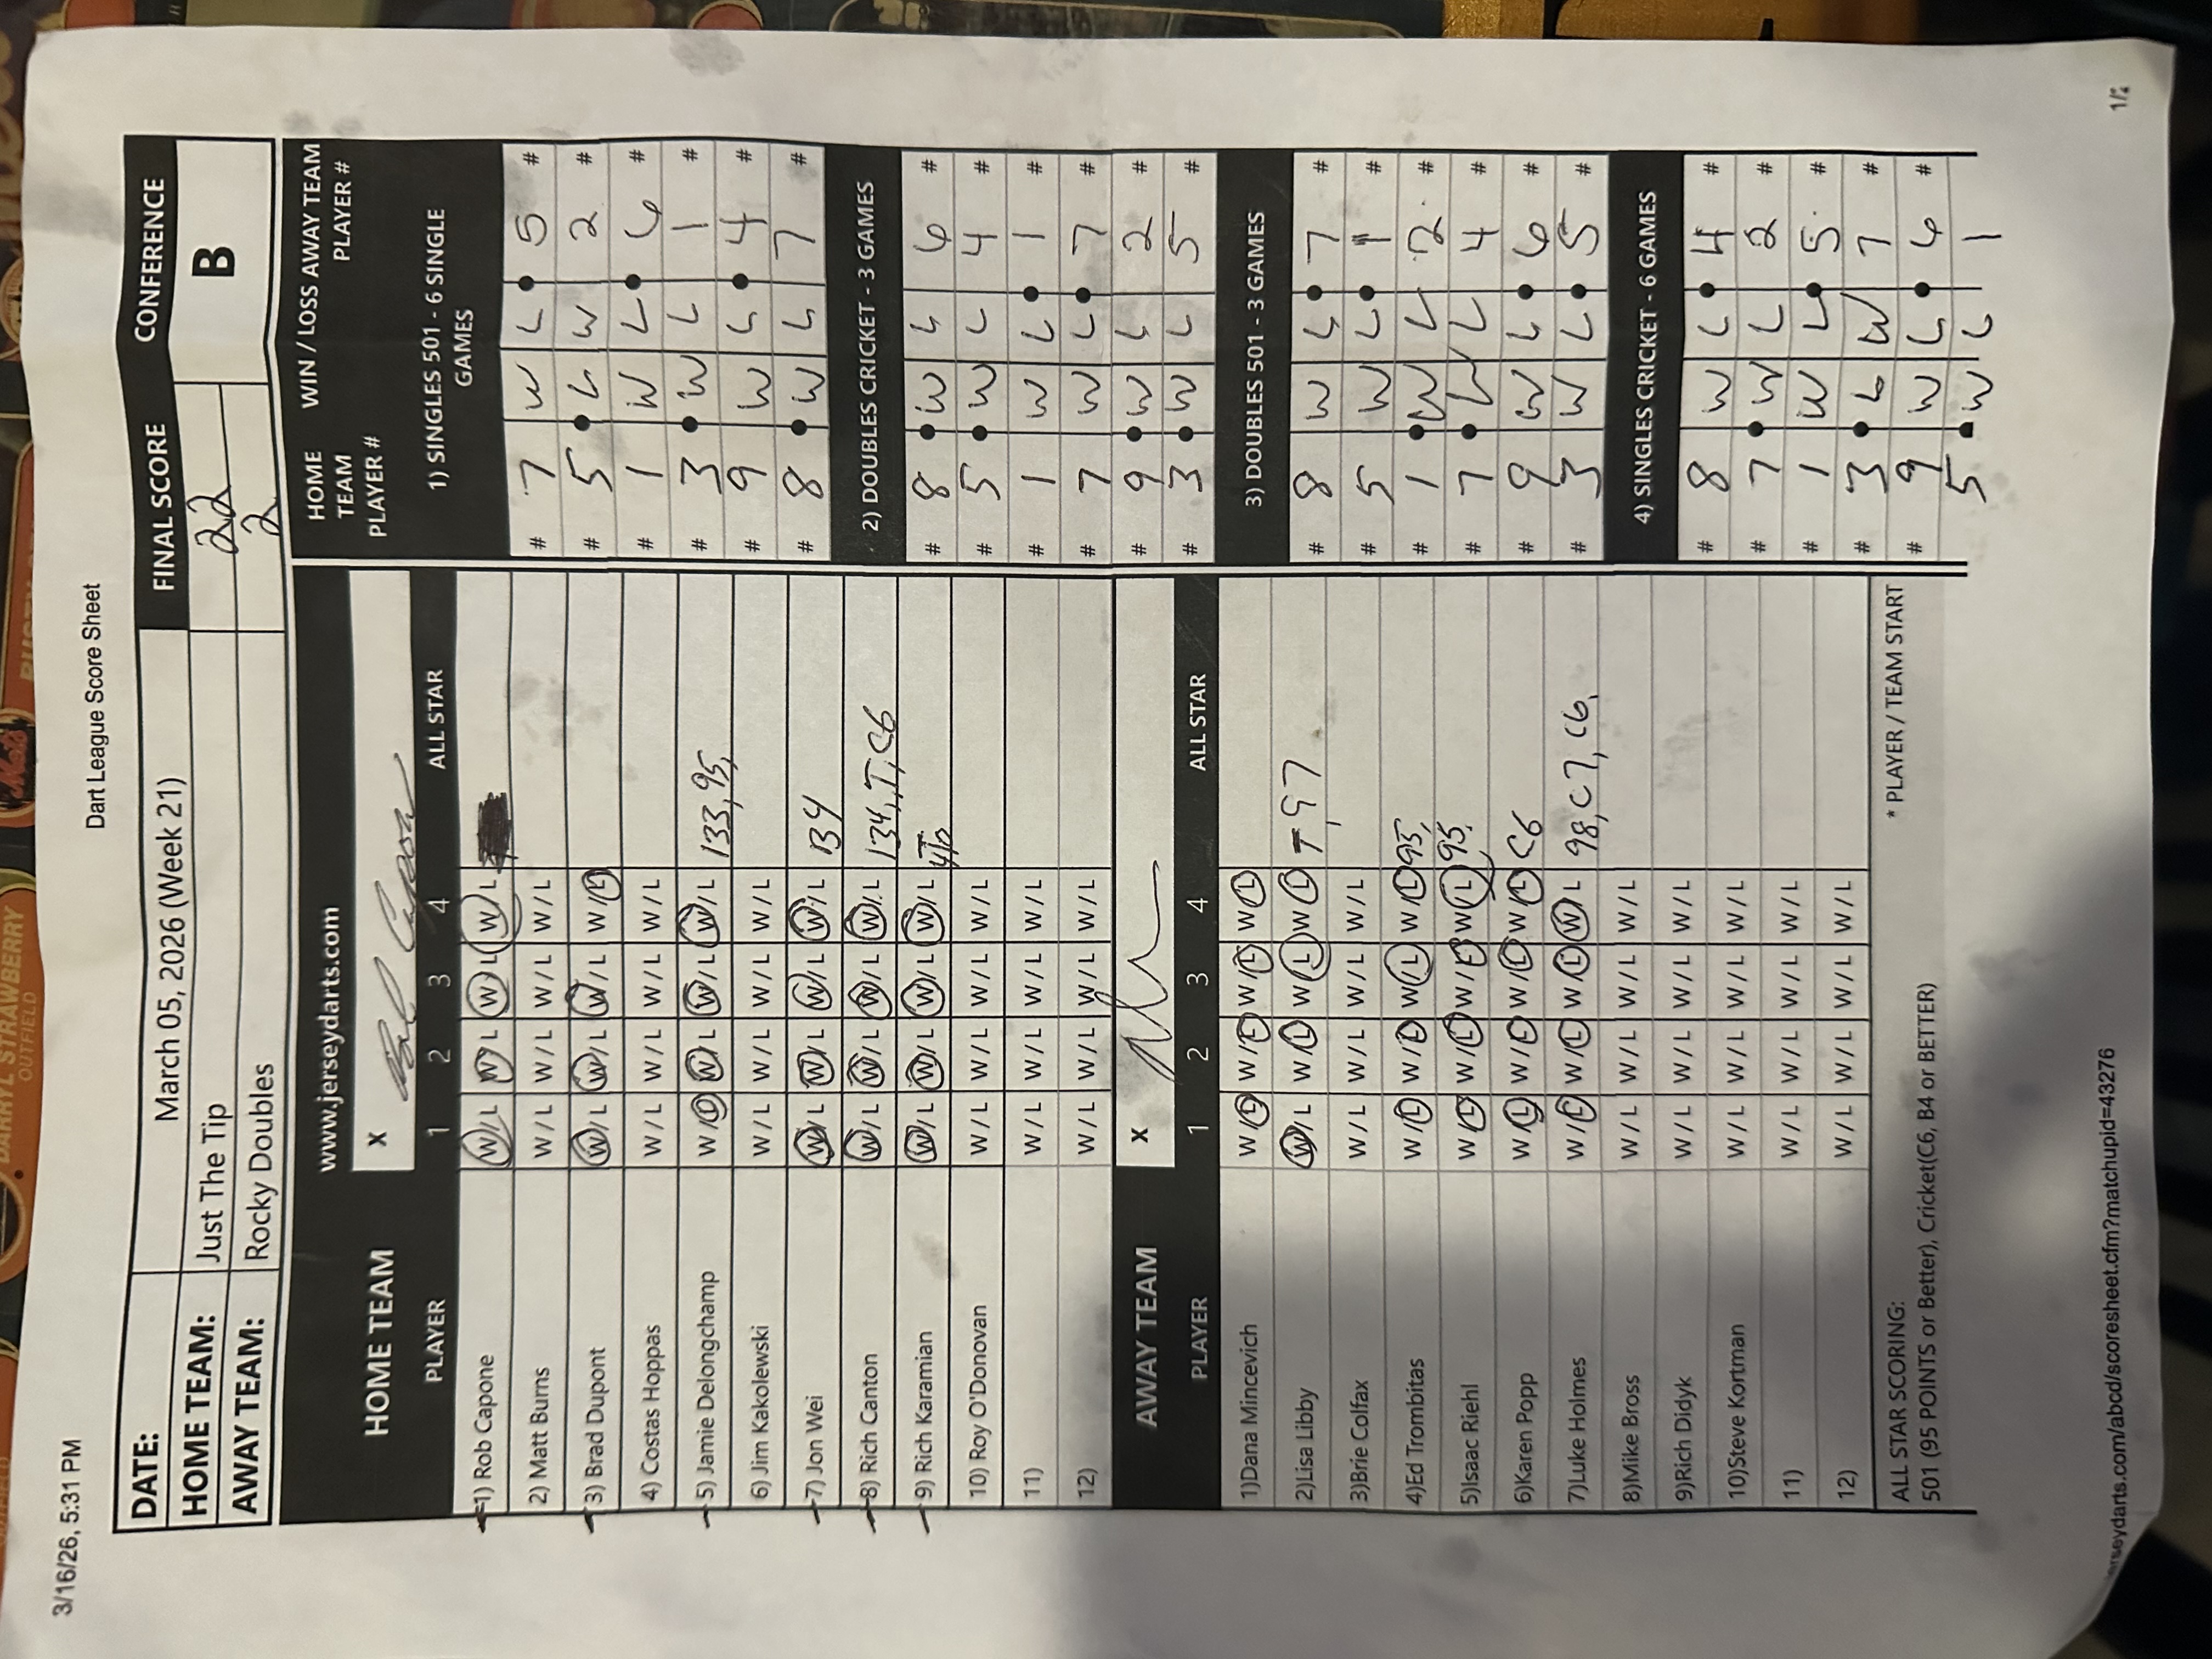 3/16/26, 5:31 PM
Dart League Score Sheet
DATE: March 05, 2026 (Week 21) FINAL SCORE CONFERENCE
HOME TEAM: Just The Tip 22 B
AWAY TEAM: Rocky Doubles 2
www.jerseydarts.com
HOME TEAM X Rob Capone
PLAYER 1 2 3 4 ALL STAR
1) Rob Capone W/L W/L W/L W/L
2) Matt Burns W/L W/L W/L W/L
3) Brad Dupont W/L W/L W/L W/L
4) Costas Hoppas W/L W/L W/L W/L
5) Jamie Delongchamp W/L W/L W/L W/L 133, 95,
6) Jim Kakolewski W/L W/L W/L W/L
7) Jon Wei W/L W/L W/L W/L 134
8) Rich Canton W/L W/L W/L W/L 134, T, C6
9) Rich Karamian W/L W/L W/L W/L
10) Roy O'Donovan W/L W/L W/L W/L
11) W/L W/L W/L W/L
12) W/L W/L W/L W/L
AWAY TEAM X
PLAYER 1 2 3 4 ALL STAR
1)Dana Mincevich W/L W/L W/L W/L
2)Lisa Libby W/L W/L W/L W/L T, 97
3)Brie Colfax W/L W/L W/L W/L
4)Ed Trombitas W/L W/L W/L W/L 95,
5)Isaac Riehl W/L W/L W/L W/L 95,
6)Karen Popp W/L W/L W/L W/L C6
7)Luke Holmes W/L W/L W/L W/L 98, C7, C6,
8)Mike Bross W/L W/L W/L W/L
9)Rich Didyk W/L W/L W/L W/L
10)Steve Kortman W/L W/L W/L W/L
11) W/L W/L W/L W/L
12) W/L W/L W/L W/L
ALL STAR SCORING:
501 (95 POINTS or Better), Cricket(C6, B4 or BETTER)
* PLAYER / TEAM START
HOME TEAM PLAYER # WIN / LOSS AWAY TEAM PLAYER #
1) SINGLES 501 - 6 SINGLE GAMES
# 7 W L 5 #
# 5 L W 2 #
# 1 W L 6 #
# 3 W L 1 #
# 9 W L 4 #
# 8 W L 7 #
2) DOUBLES CRICKET - 3 GAMES
# 8 W L 6 #
# 5 W L 4 #
# 1 W L 1 #
# 7 W L 7 #
# 9 W L 2 #
# 3 W L 5 #
3) DOUBLES 501 - 3 GAMES
# 8 W L 7 #
# 5 W L 1 #
# 1 W L 2 #
# 7 W L 4 #
# 9 W L 6 #
# 3 W L 5 #
4) SINGLES CRICKET - 6 GAMES
# 8 W L 4 #
# 7 W L 2 #
# 1 W L 5 #
# 3 L W 7 #
# 9 W L 6 #
5 W L 1
erseydarts.com/abcd/scoresheet.cfm?matchupid=43276
1/2